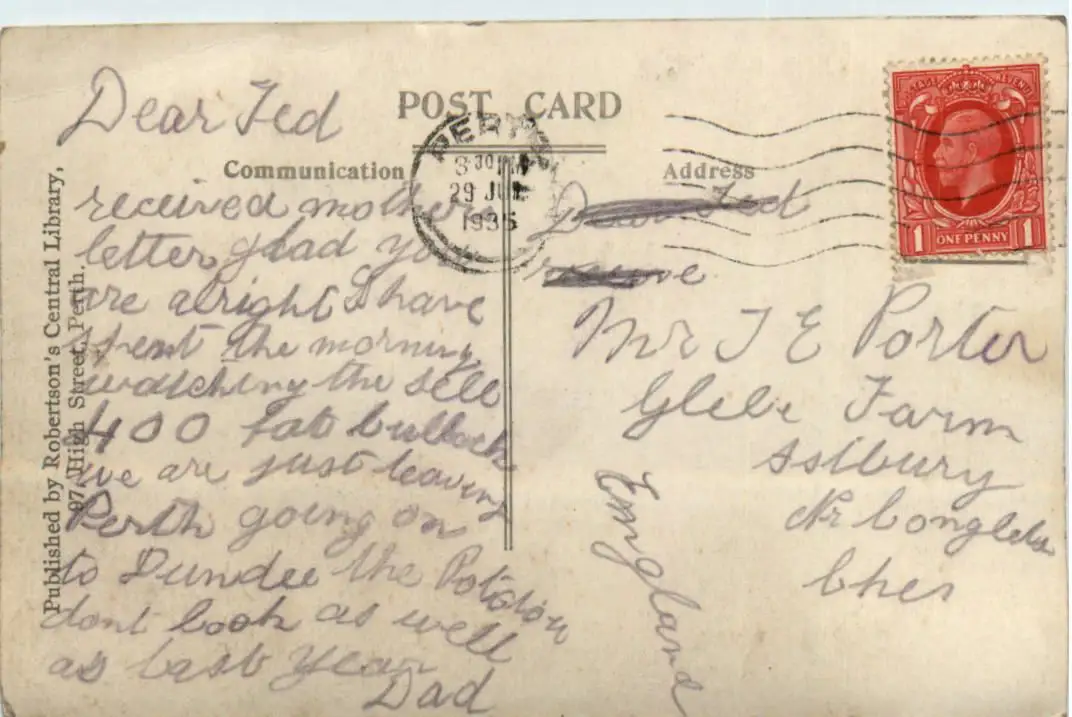 POST CARD
Communication
Address
Published by Robertson's Central Library,
97, High Street, Perth.
PERTH
8 30 PM
29 JUL
1935
POSTAGE REVENUE
1 ONE PENNY 1
Dear Ted
received mothers
letter glad you
are alright I have
spent the morning
watching the sell
400 fat bullock
we are just leaving
Perth going on
to Dundee the Potatoes
dont look as well
as last year
Dad
Dear Ted
Mr T E Porter
Glebe Farm
Astbury
Nr Congleton
Ches
England